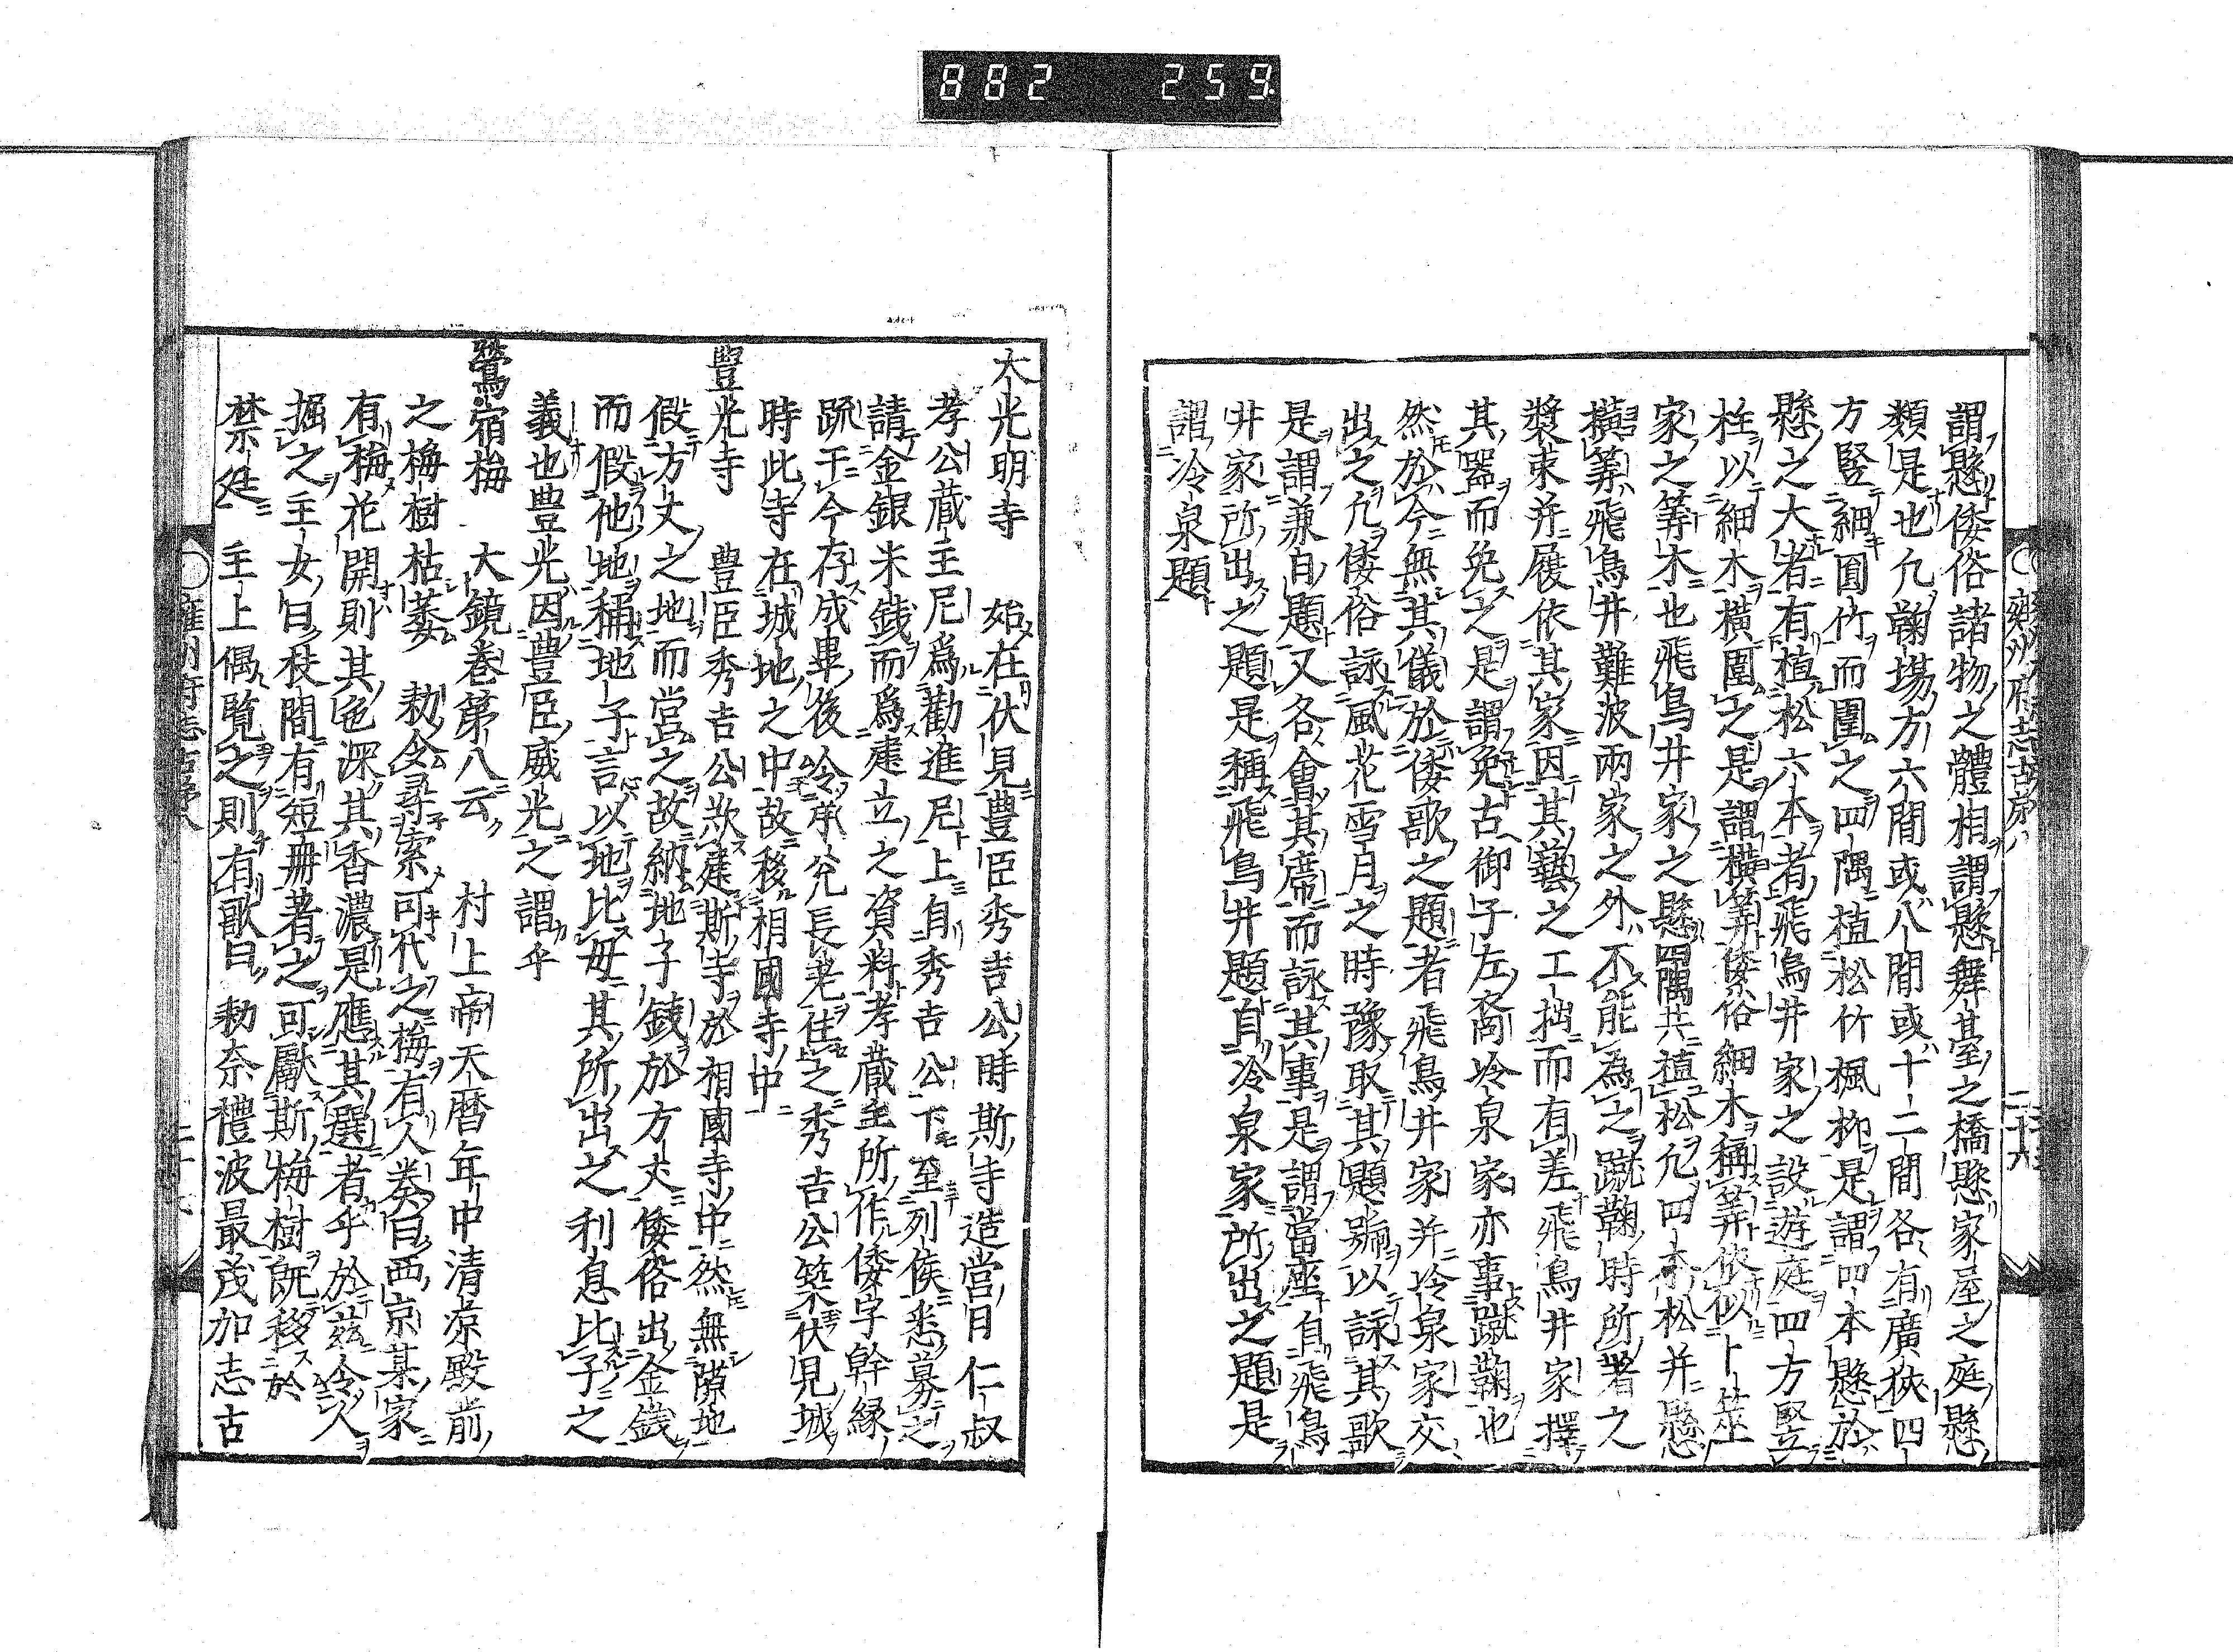 882 259
謂懸倭俗諸物之體相謂懸舞臺之橋懸家屋之庭懸
類是也凢鞠場方六間或八間或十二間各有廣狹四
方竪細圓竹而圍之四隅植松竹楓柳是謂四本懸於
懸之大者有植松六本者飛鳥井家之設遊庭四方竪
柱以細木橫圍之是謂橫筭倭俗細木稱筭依似卜筮
家之筭木也飛鳥井家之懸四隅共植松凢四本松并懸
橫筭飛鳥井難波兩家之外不能為之蹴鞠時所著之
漿束并屐依其家因其藝之工拙而有差飛鳥井家擇
其器而免之是謂免古御子左裔冷泉家亦事蹴鞠也
然於今無其儀於倭歌之題者飛鳥井家并冷泉家交
出之凢倭俗詠風花雪月之時豫取其題號以詠其歌
是謂兼自題又各會其席而詠其事是謂當座自飛鳥
井家所出之題是稱飛鳥井題自冷泉家所出之題是
謂冷泉題
大光明寺 始在伏見豊臣秀吉公時斯寺造営日仁叔
孝公蔵主尼爲勸進尼上自秀吉公下至列侯悉募之
請金銀朱銭而爲建立之資料孝蔵主所作倭字幹縁
疏于今存成畢後令承兊長老住之秀吉公築伏見城
時此寺在城地之中故移相國寺中
豊光寺 豊臣秀吉公欲建斯寺於相國寺中然無隙地
假方丈之地而営之故納地子銭於方丈倭俗出金銭
而假他地稱地子言以地比毋其所出之利息比子之
義也豊光因豊臣威光之謂乎
鶯宿梅 大鏡卷第八云 村上帝天暦年中清凉殿前
之梅樹枯萎 勅令尋索可代之梅有人奏曰西京某家
有梅花開則其色深其香濃是應其選者乎於兹令人
掘之主女曰枝間有短冊著之可厭斯梅樹既移於
禁廷 主上偶覧之則有歌曰 勅奈禮波最茂加志古